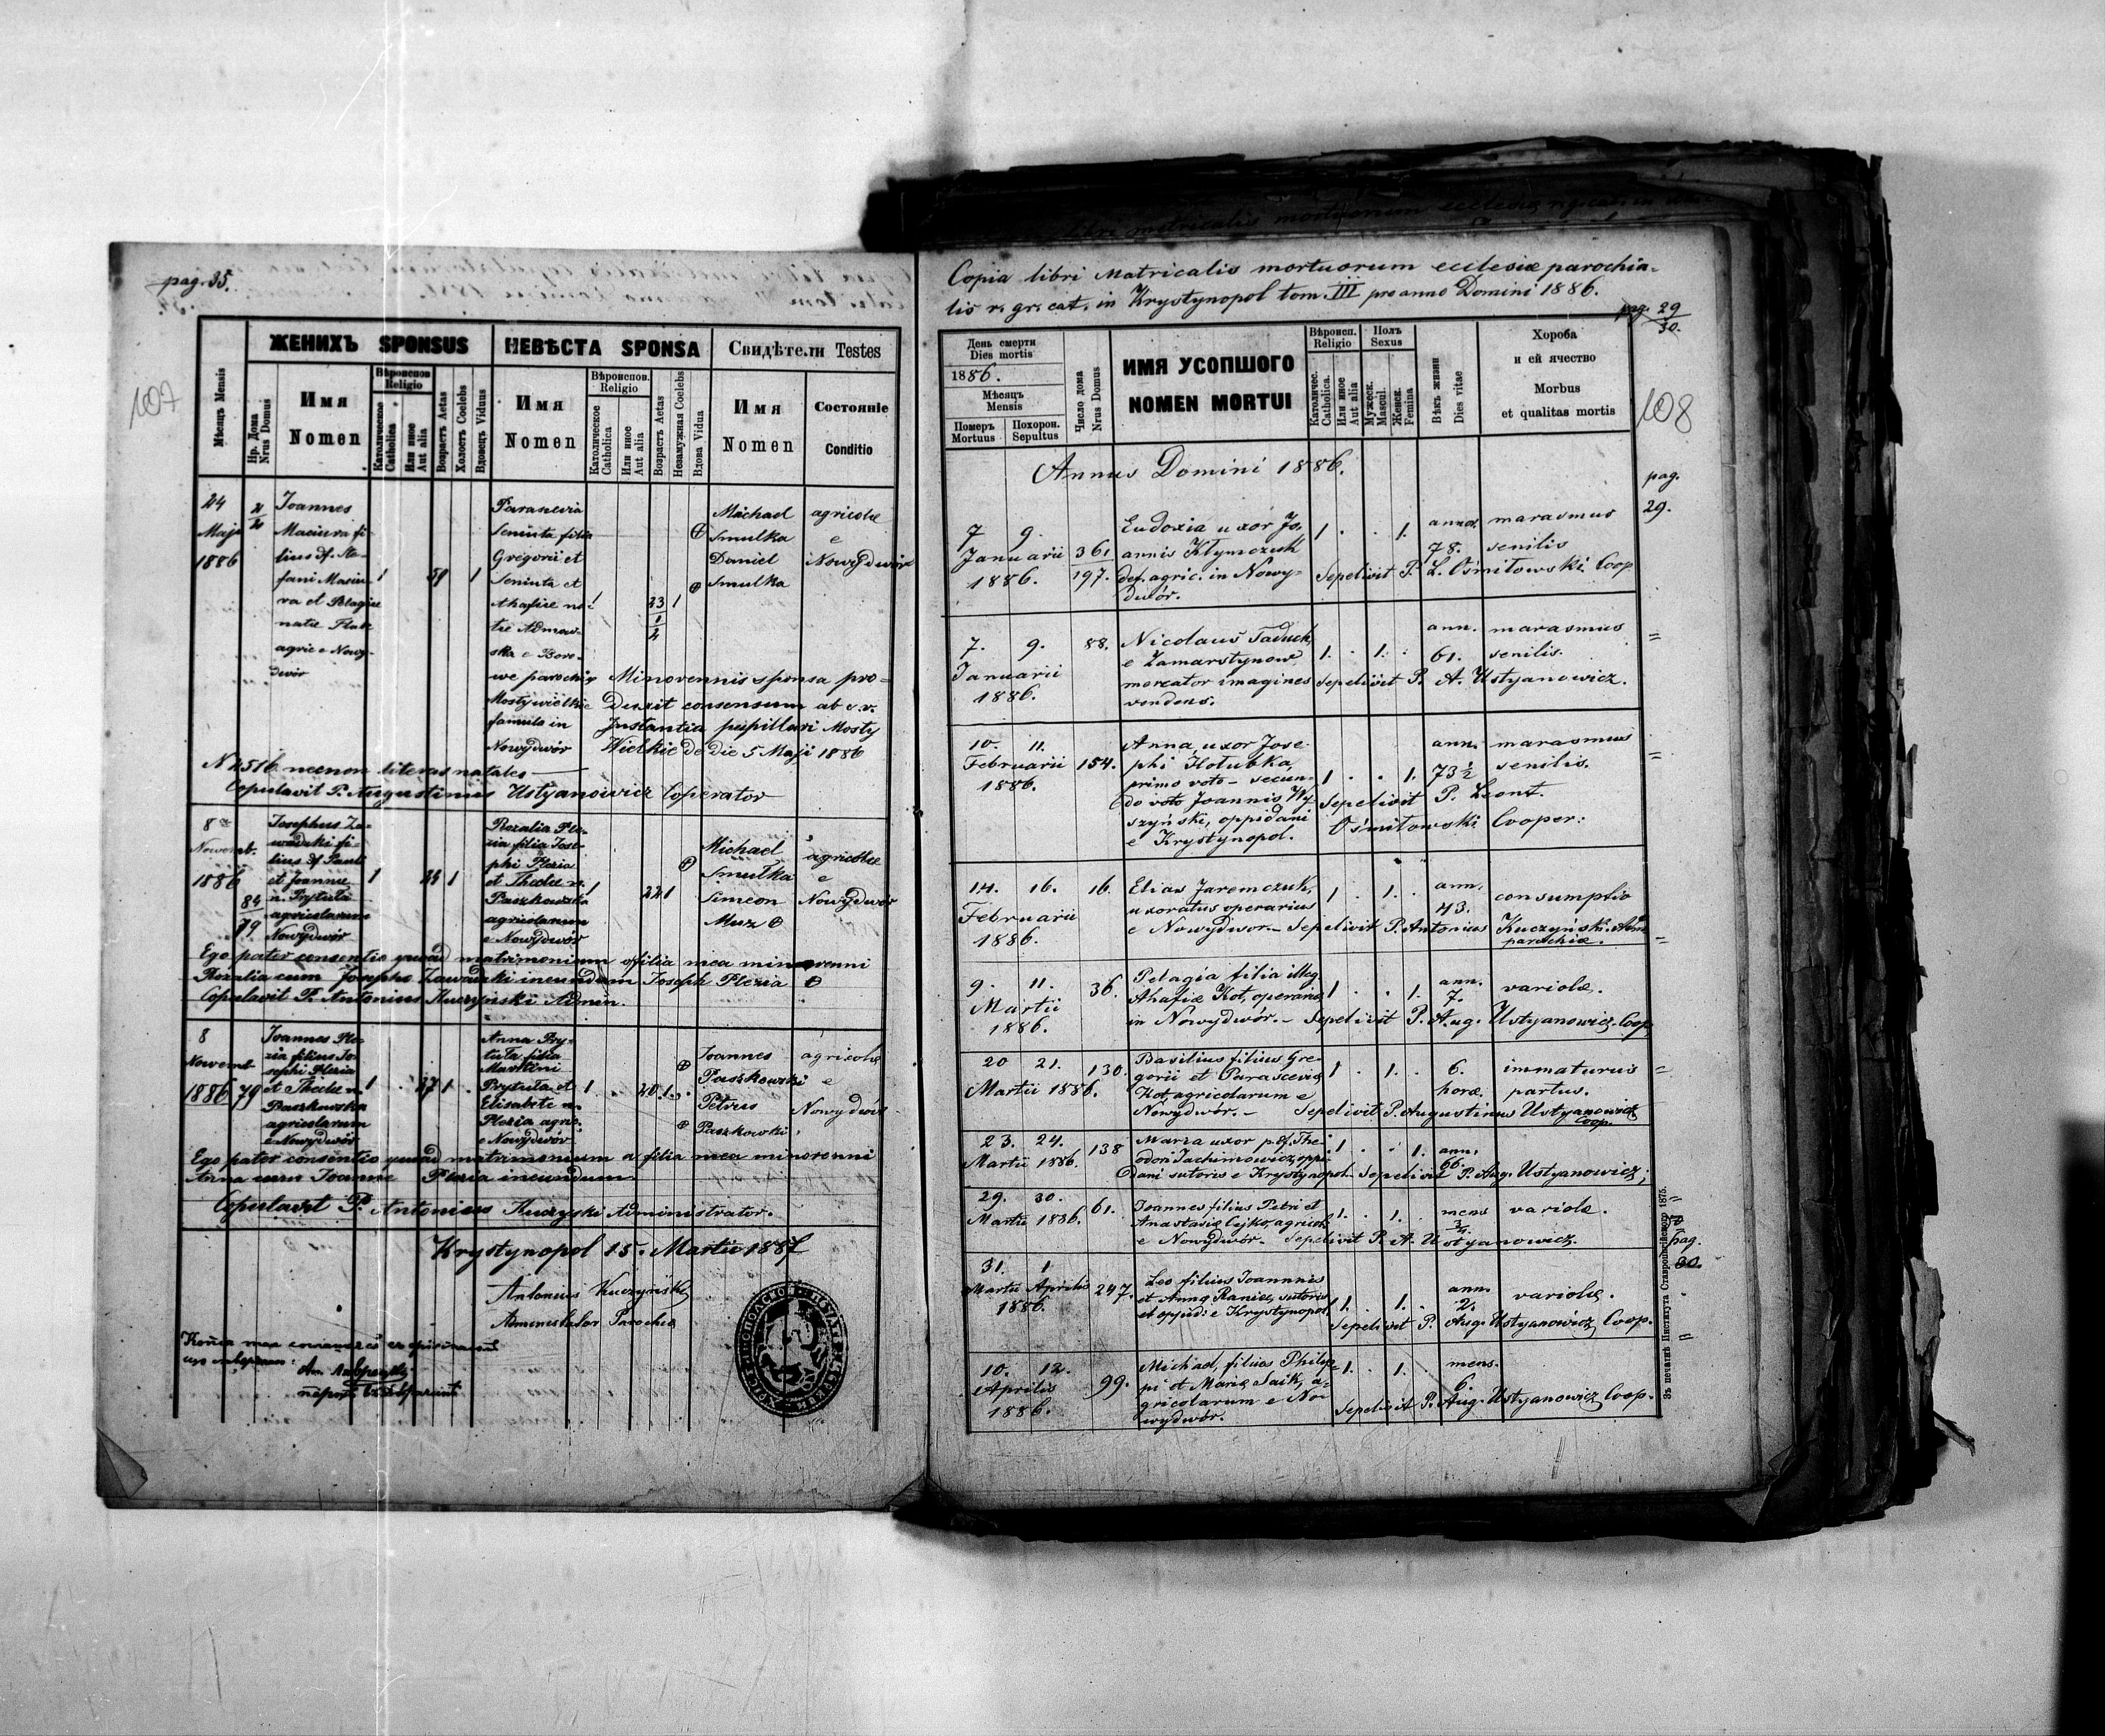 pag. 35.
107
ЖЕНИХЪ SPONSUS
НЕВѢСТА SPONSA
Свидѣтели Testes
Мѣсяцъ Mensis
Нр. Дома
Nrus Domus
Имя
Nomen
Вѣроиспов.
Religio
Католическое
Catholica
Или иное
Aut alia
Возрастъ Aetas
Холостъ Coelebs
Вдовецъ Viduus
Имя
Nomen
Вѣроиспов.
Religio
Католическое
Catholica
Или иное
Aut alia
Возрастъ Aetas
Незамужная Coelebs
Вдова Vidua
Имя
Nomen
Состояніе
Conditio
24
Maji
1886
Joannes
Maciura fi-
lius df. Ste-
fani Maciu-
ra et Pelagiae
natae
agric e Nowy-
dwór
1
59
1
Parascevia
Seniuta filia
Gregorii et
Seniuta et
Ahafiae na-
tae
ska e Boro-
we parochiae
Mosty wielkie
famula in
Nowydwór
1
23
1/2
1
Michael
Smulka
Daniel
Smulka
agricolae
e
Nowydwór
Minorennis sponsa pro-
Duxit consensum ab c.r.
Instantia pupillari Mosty
Wielkie de die 5 Maji 1886
N 2516 necnon literas natales
Copulavit P. Augustinus Ustyanowicz Coperator
8
Novemb.
1886
84
79
Josephus Za-
wadzki fi-
lius df Pauli
et Joannae
n. Prytula
agricolarum
Nowydwór
1
24 1
Rozalia Ple-
zia filia Jose-
phi Plezia
et Theclae n.
Paszkowska
agricolarum
e Nowydwór
1
22 1
Michael
Smulka
Simeon
Muz
agricolae
e
Nowydwór
Ego pater consentio quoad matrimonium a filia mea minorenni
Rozalia cum Josepho Zawadzki ineundum Joseph Plezia
Copulavit P. Antonius Kuczyński Admin.
8
Novemb
1886
79
Joannes Ple-
zia filius Jo-
sephi Plezia
et Theclae n.
Paszkowska
agricolarum
e Nowydwór
1
27 1
Anna Pry-
tula filia
Martini
Prytula et
Elisabete n.
Plezia agric.
e Nowydwór
1
20 1
Joannes
Paszkowski
Petrus
Paszkowski
agricolae
e
Nowydwór
Ego pater consentio quoad matrimonium a filia mea minorenni
Anna cum Joanne Plezia ineundum
Copulavit P. Antonius Kuczyski Administrator.
Krystynopol 15. Martii 1887
Antonius Kuczyński
Administrator Parochiae
Copia libri Matricalis mortuorum ecclesiae parochia-
lis r. gr. cat. in Krystynopol tom. III pro anno Domini 1886.
pag. 29
30.
108
День смерти
Dies mortis
1886.
Мѣсяцъ
Mensis
Померъ
Mortuus
Похорон.
Sepultus
Число дома
Nrus Domus
ИМЯ УСОПШОГО
NOMEN MORTUI
Вѣроисп.
Religio
Католичес.
Catholica.
Или иное
Aut alia
Полъ
Sexus
Мужеск.
Mascul.
Женск.
Femina
Вѣкъ жизни
Dies vitae
Хороба
и ей ячество
Morbus
et qualitas mortis
Annus Domini 1886.
pag.
29.
7 9.
Januarii
1886.
361
197.
Eudoxia uxor Jo-
annis Klymczuk
def. agric. in Nowy-
dwór.
1. . . 1.
annor.
78.
marasmus
senilis
Sepelivit P. L. Ośmiłowski Coop
7. 9.
Januarii
1886.
88.
Nicolaus Taduch
e Zamarstynow
mercator imagines
vendens.
1. . 1. .
ann.
61.
marasmus
senilis.
Sepelivit P. A. Ustyanowicz.
10. 11.
Februarii
1886.
154.
Anna, uxor Jose-
phi Hołubka,
primo voto - secun-
do voto Joannis Wy-
szyński, oppidani
e Krystynopol.
1 . . 1.
ann.
73 1/2
marasmus
senilis.
Sepelivit P. Leont.
Ośmiłowski Cooper:
14. 16.
Februarii
1886.
16.
Elias Jaremczuk,
uxoratus operarius
e Nowydwor. - Sepelivit P. Antonius Kuczyński Adm
parochiae.
1 . 1. .
ann.
43.
consumptio
9. 11.
Martii
1886.
36.
Pelagia filia illeg.
Ahafiae Kot, operans
in Nowydwór. - Sepelivit P. Aug. Ustyanowicz Coop
1 . . 1.
ann.
7.
variolae.
20 21.
Martii 1886.
130.
Basilius filius Gre-
gorii et Parasceviae
Kot, agricolarum e
Nowydwór. - Sepelivit P. Augustinus Ustyanowicz
Coop.
1 . 1. .
6.
horae
immaturus
partus.
23. 24.
Martii 1886.
138
Maria uxor p. df. The-
odori Jachimowicz, oppi-
dani sutoris e Krystynopol. Sepelivit P. Aug. Ustyanowicz;
1 . . 1.
ann.
66.
29. 30.
Martii 1886.
61.
Joannes filius Petri et
Anastasiae Cejko, agricol.
e Nowydwór. Sepelivit P. A. Ustyanowicz.
1. . 1. .
mens
3/4
variolae.
pag.
30.
31. 1
Martii Aprilis
1886.
247.
Leo filius Joannis
et Annae Rania, sutoris
et oppid: e Krystynopol
1. . 1. .
ann.
2.
variolae.
Sepelivit P. Aug. Ustyanowicz Coop.
10. 12.
Aprilis
1886.
99.
Michael, filius Philip-
pi et Mariae Saik, a-
gricolarum e No-
wydwór.
1. . 1.
mens.
6.
Sepelivit P. Aug. Ustyanowicz Coop.
Зъ печатнѣ Института Ставропигійского 1875.